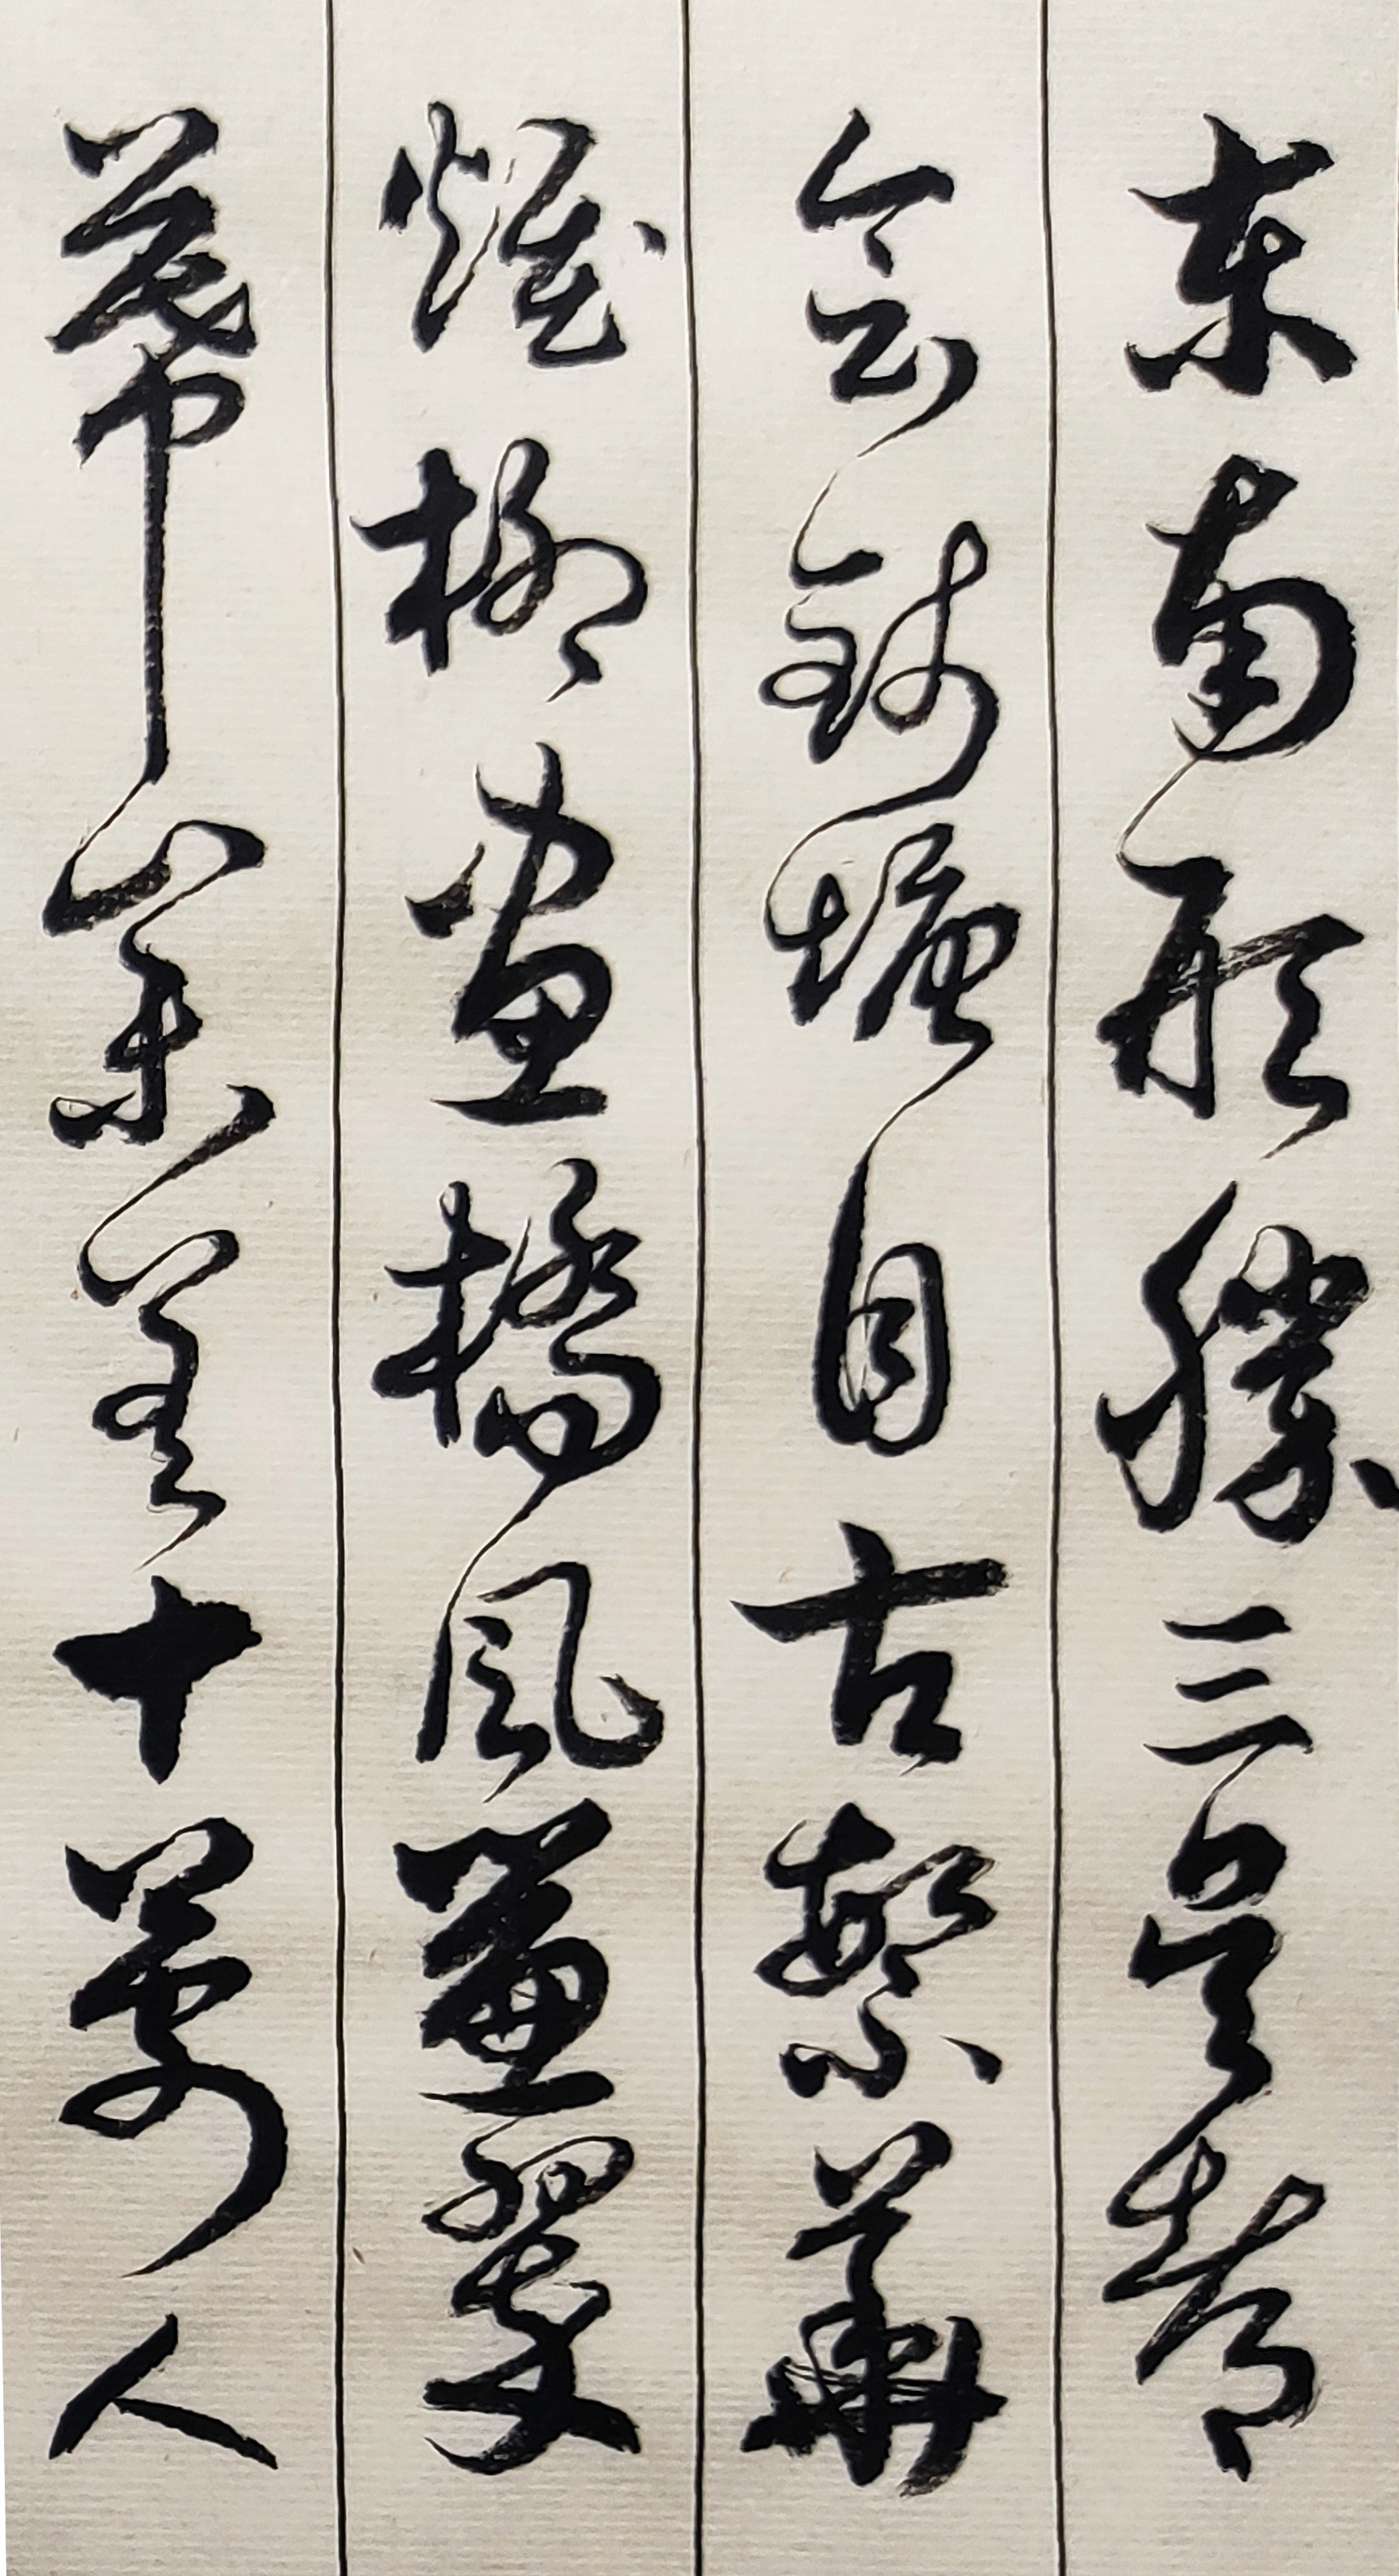 東南形勝三吳都
會錢塘自古繁華
煙柳畫橋風簾翠
幕參差十萬人